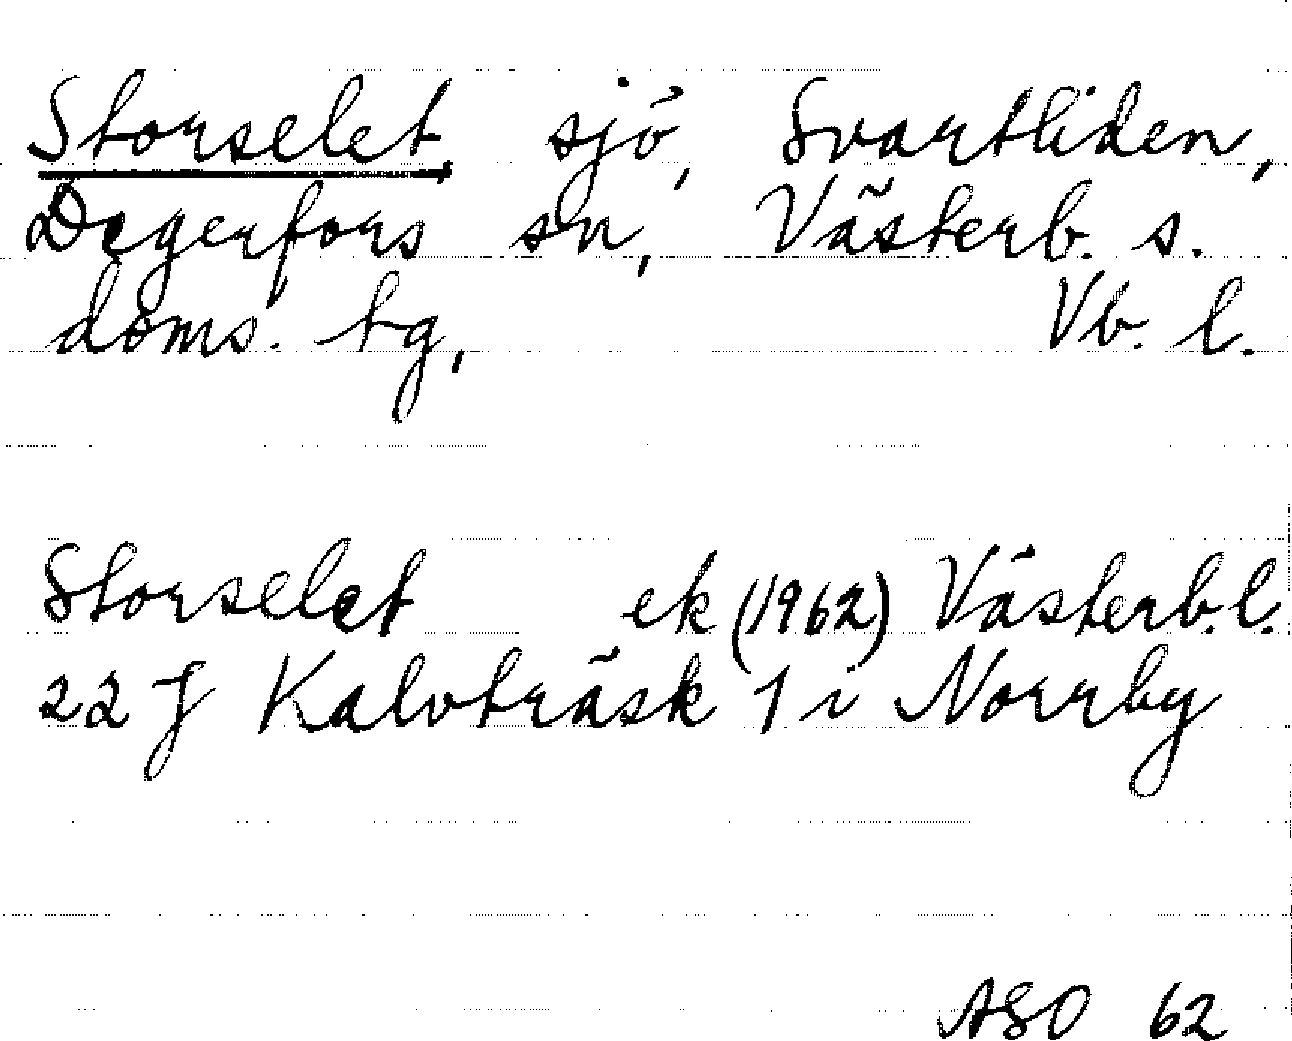 Storselet, sjö, Svartliden,
Degerfors sn, Västerb. s.
doms. tg, Vb. l.
Storselet ek (1962) Västerb. l.
22 J Kalvträsk 1 i Norrby
ASO 62